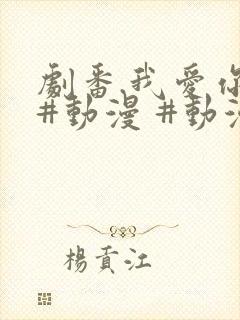 劇番我愛你
#動漫 #動漫
楊貢江